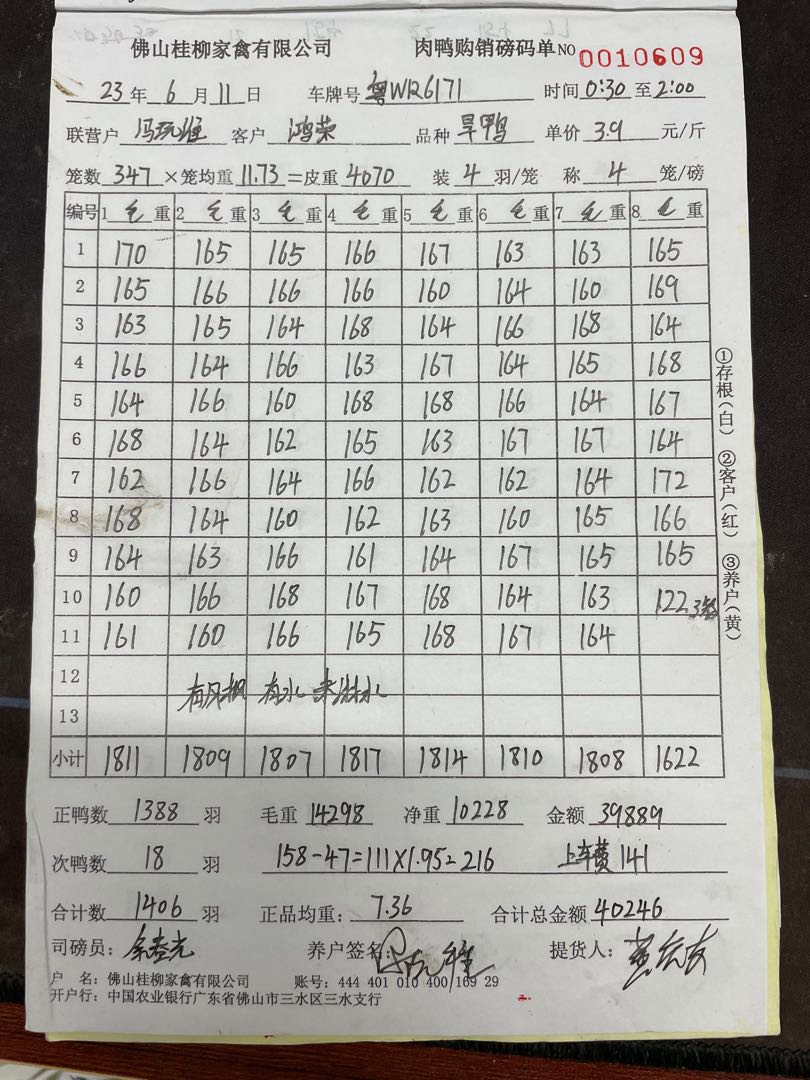 佛山桂柳家禽有限公司 肉鸭购销磅码单 NO 0010609
23 年 6 月 11 日 车牌号 粤WR6171 时间 0:30 至 2:00
联营户 冯玩维 客户 鸿荣 品种 旱鸭 单价 3.9 元/斤
笼数 347 ×笼均重 11.73 =皮重 4070 装 4 羽/笼 称 4 笼/磅
编号 1 毛 重 2 毛 重 3 毛 重 4 毛 重 5 毛 重 6 毛 重 7 毛 重 8 毛 重
1 170 165 165 166 167 163 163 165
2 165 166 166 166 160 164 160 169
3 163 165 164 168 164 166 168 164
4 166 164 166 163 167 164 165 168
5 164 166 160 168 168 166 164 167
6 168 164 162 165 163 167 167 164
7 162 166 164 166 162 162 164 172
8 168 164 160 162 163 160 165 166
9 164 163 166 161 164 167 165 165
10 160 166 168 167 168 164 163 122
11 161 160 166 165 168 167 164
12
有水
13
小计 1811 1809 1807 1817 1814 1810 1808 1622
正鸭数 1388 羽 毛重 14298 净重 10228 金额 39889
次鸭数 18 羽 158-47=111×1.95=216 上车费 141
合计数 1406 羽 正品均重: 7.36 合计总金额 40246
司磅员: 养户签名: 提货人:
户 名: 佛山桂柳家禽有限公司 账号: 444 401 010 400 169 29
开户行: 中国农业银行广东省佛山市三水区三水支行
①存根(白) ②客户(红) ③养户(黄)